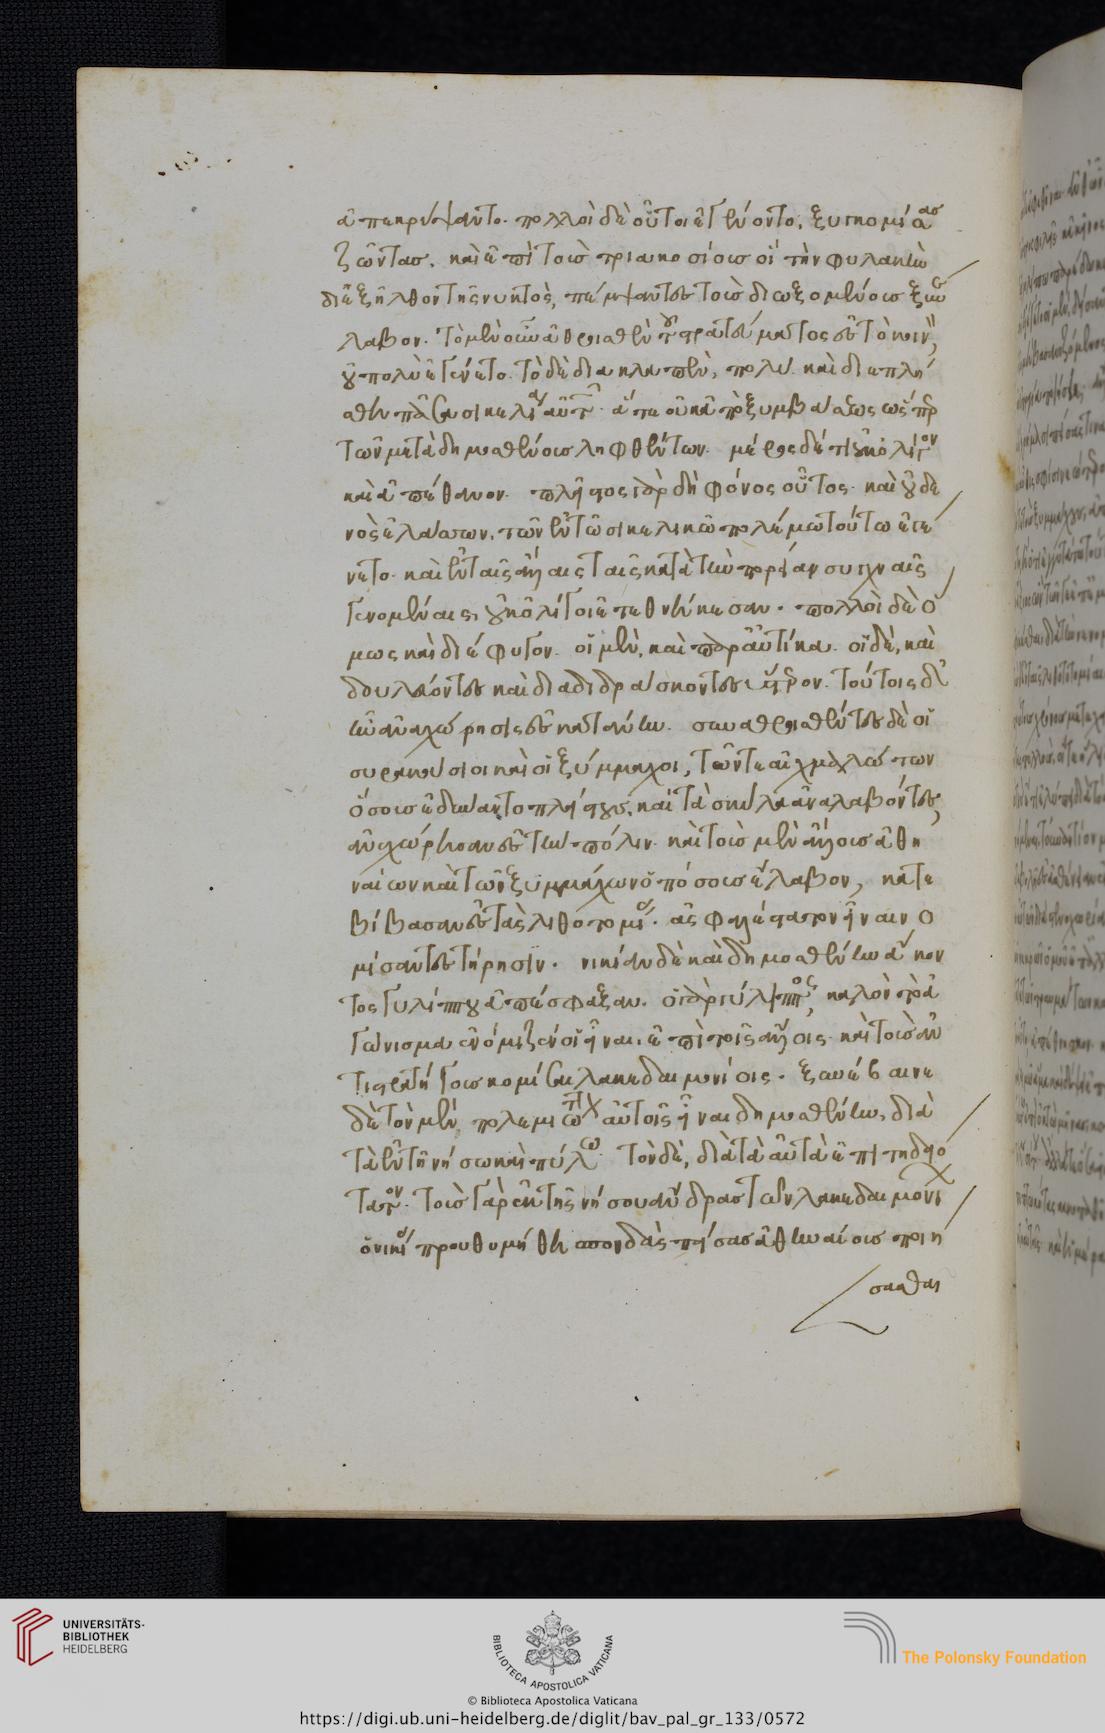 ἀπεκρύψαντο. πολλοὶ δὲ οὗτοι ἐγένοντο, ξυνεκομίσαν
ζῶντας. καὶ ἐπὶ τοὺς τριακοσίους οἳ τὴν φυλακὴν
διεξῆλθον τῆς νυκτὸς, πέμψαντες τοὺς διωξομένους ξυνέ
λαβον. τὸ μὲν οὖν ἀθροισθὲν τοῦ στρατεύματος ἐς τὸ κοινὸν,
οὐ πολὺ ἐγένετο. τὸ δὲ διακλαπὲν, πολύ. καὶ διεπλή
σθη πᾶσα σικελία αὐτῶν. ἅτε οὐκ ἀπὸ ξυμβάσεως ὥσπερ
τῶν μετὰ δημοσθένους ληφθέντων. μέρος δέ τι οὐκ ὀλίγον
καὶ ἀπέθανον. πλεῖστος γὰρ δὴ φόνος οὗτος. καὶ οὐδε
νὸς ἐλάσσων. τῶν ἐν τῶ σικελικῶ πολέμω τούτω ἐγέ
νετο. καὶ ἐν ταῖς ἄλλαις ταῖς κατὰ τὴν πορείαν συχναῖς
γενομέναις, οὐκ ὀλίγοι ἐτεθνήκεσαν. πολλοὶ δὲ ὅ
μως καὶ διέφυγον. οἱ μὲν, καὶ παραυτίκα. οἱ δὲ, καὶ
δουλεύοντες καὶ διαδιδράσκοντες ὕστερον. τούτοις δ'
ἦν ἀναχώρησις ἐς κατάνην. ξυναθροισθέντες δὲ οἱ
συρακούσιοι καὶ οἱ ξύμμαχοι, τῶν τε αἰχμαλώτων
ὅσους ἐδύναντο πλείστους, καὶ τὰ σκῦλα ἀναλαβόντες,
ἀνεχώρησαν ἐς τὴν πόλιν. καὶ τοὺς μὲν ἄλλους ἀθη
ναίων καὶ τῶν ξυμμάχων ὁπόσους ἔλαβον, κατε
βίβασαν ἐς τὰς λιθοτομίας. ἀσφαλεστάτην εἶναι νο
μίσαντες τήρησιν. νικίαν δὲ καὶ δημοσθένην ἄκον
τος γυλίππου ἀπέσφαξαν. ὁ γὰρ γύλιππος, καλὸν τὸ ἀ
γώνισμα ἐνόμιζέν οἱ εἶναι, ἐπὶ τοῖς ἄλλοις καὶ τοὺς ἀν
τιστρατήγους κομίσαι λακεδαιμονίοις. ξυνέβαινε
δὲ τὸν μὲν, πολεμιώτατον αὐτοῖς εἶναι δημοσθένην, διὰ
τὰ ἐν τῆ νήσω καὶ πύλω. τὸν δὲ, διὰ τὰ αὐτὰ ἐπιτηδειό
τατον. τοὺς γὰρ ἐκ τῆς νήσου ἄνδρας τῶν λακεδαιμονί
ὁ νικίας προυθυμήθη σπονδὰς πείσας ἀθηναίους ποιή
σασθαι
UNIVERSITÄTS-
BIBLIOTHEK
HEIDELBERG
BIBLIOTECA APOSTOLICA VATICANA
The Polonsky Foundation
© Biblioteca Apostolica Vaticana
https://digi.ub.uni-heidelberg.de/diglit/bav_pal_gr_133/0572